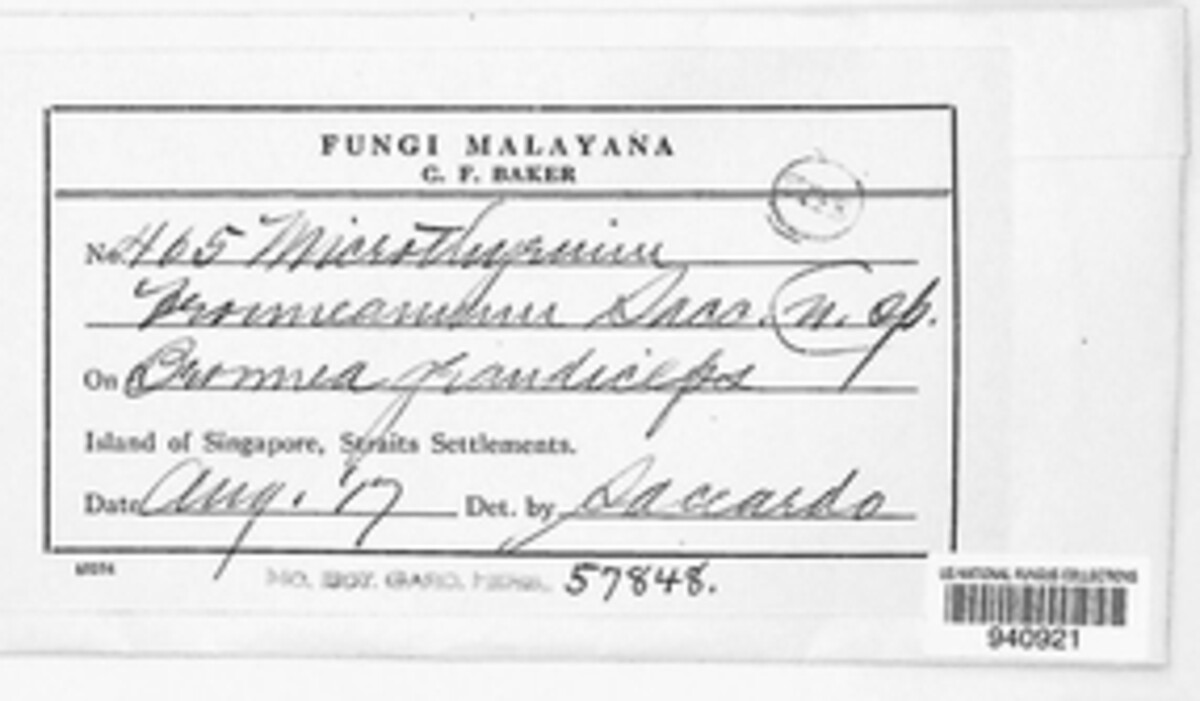 FUNGI MALAYANA
C. F. BAKER
No. 465 Microthyrium
Bromeanum Sacc. n. sp.
On Bromea grandiceps
Island of Singapore, Straits Settlements.
Date Aug. '17 Det. by Saccardo
MO. BOT. GARD. HERB. 57848.
US NATIONAL FUNGUS COLLECTIONS
940921